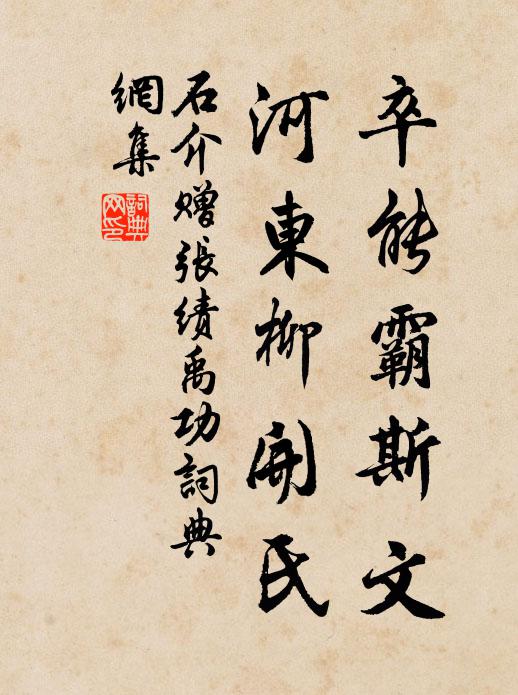 卒能霸斯文
河東柳開氏
石介赠張绩禹功詞典
網集
詞典
网印